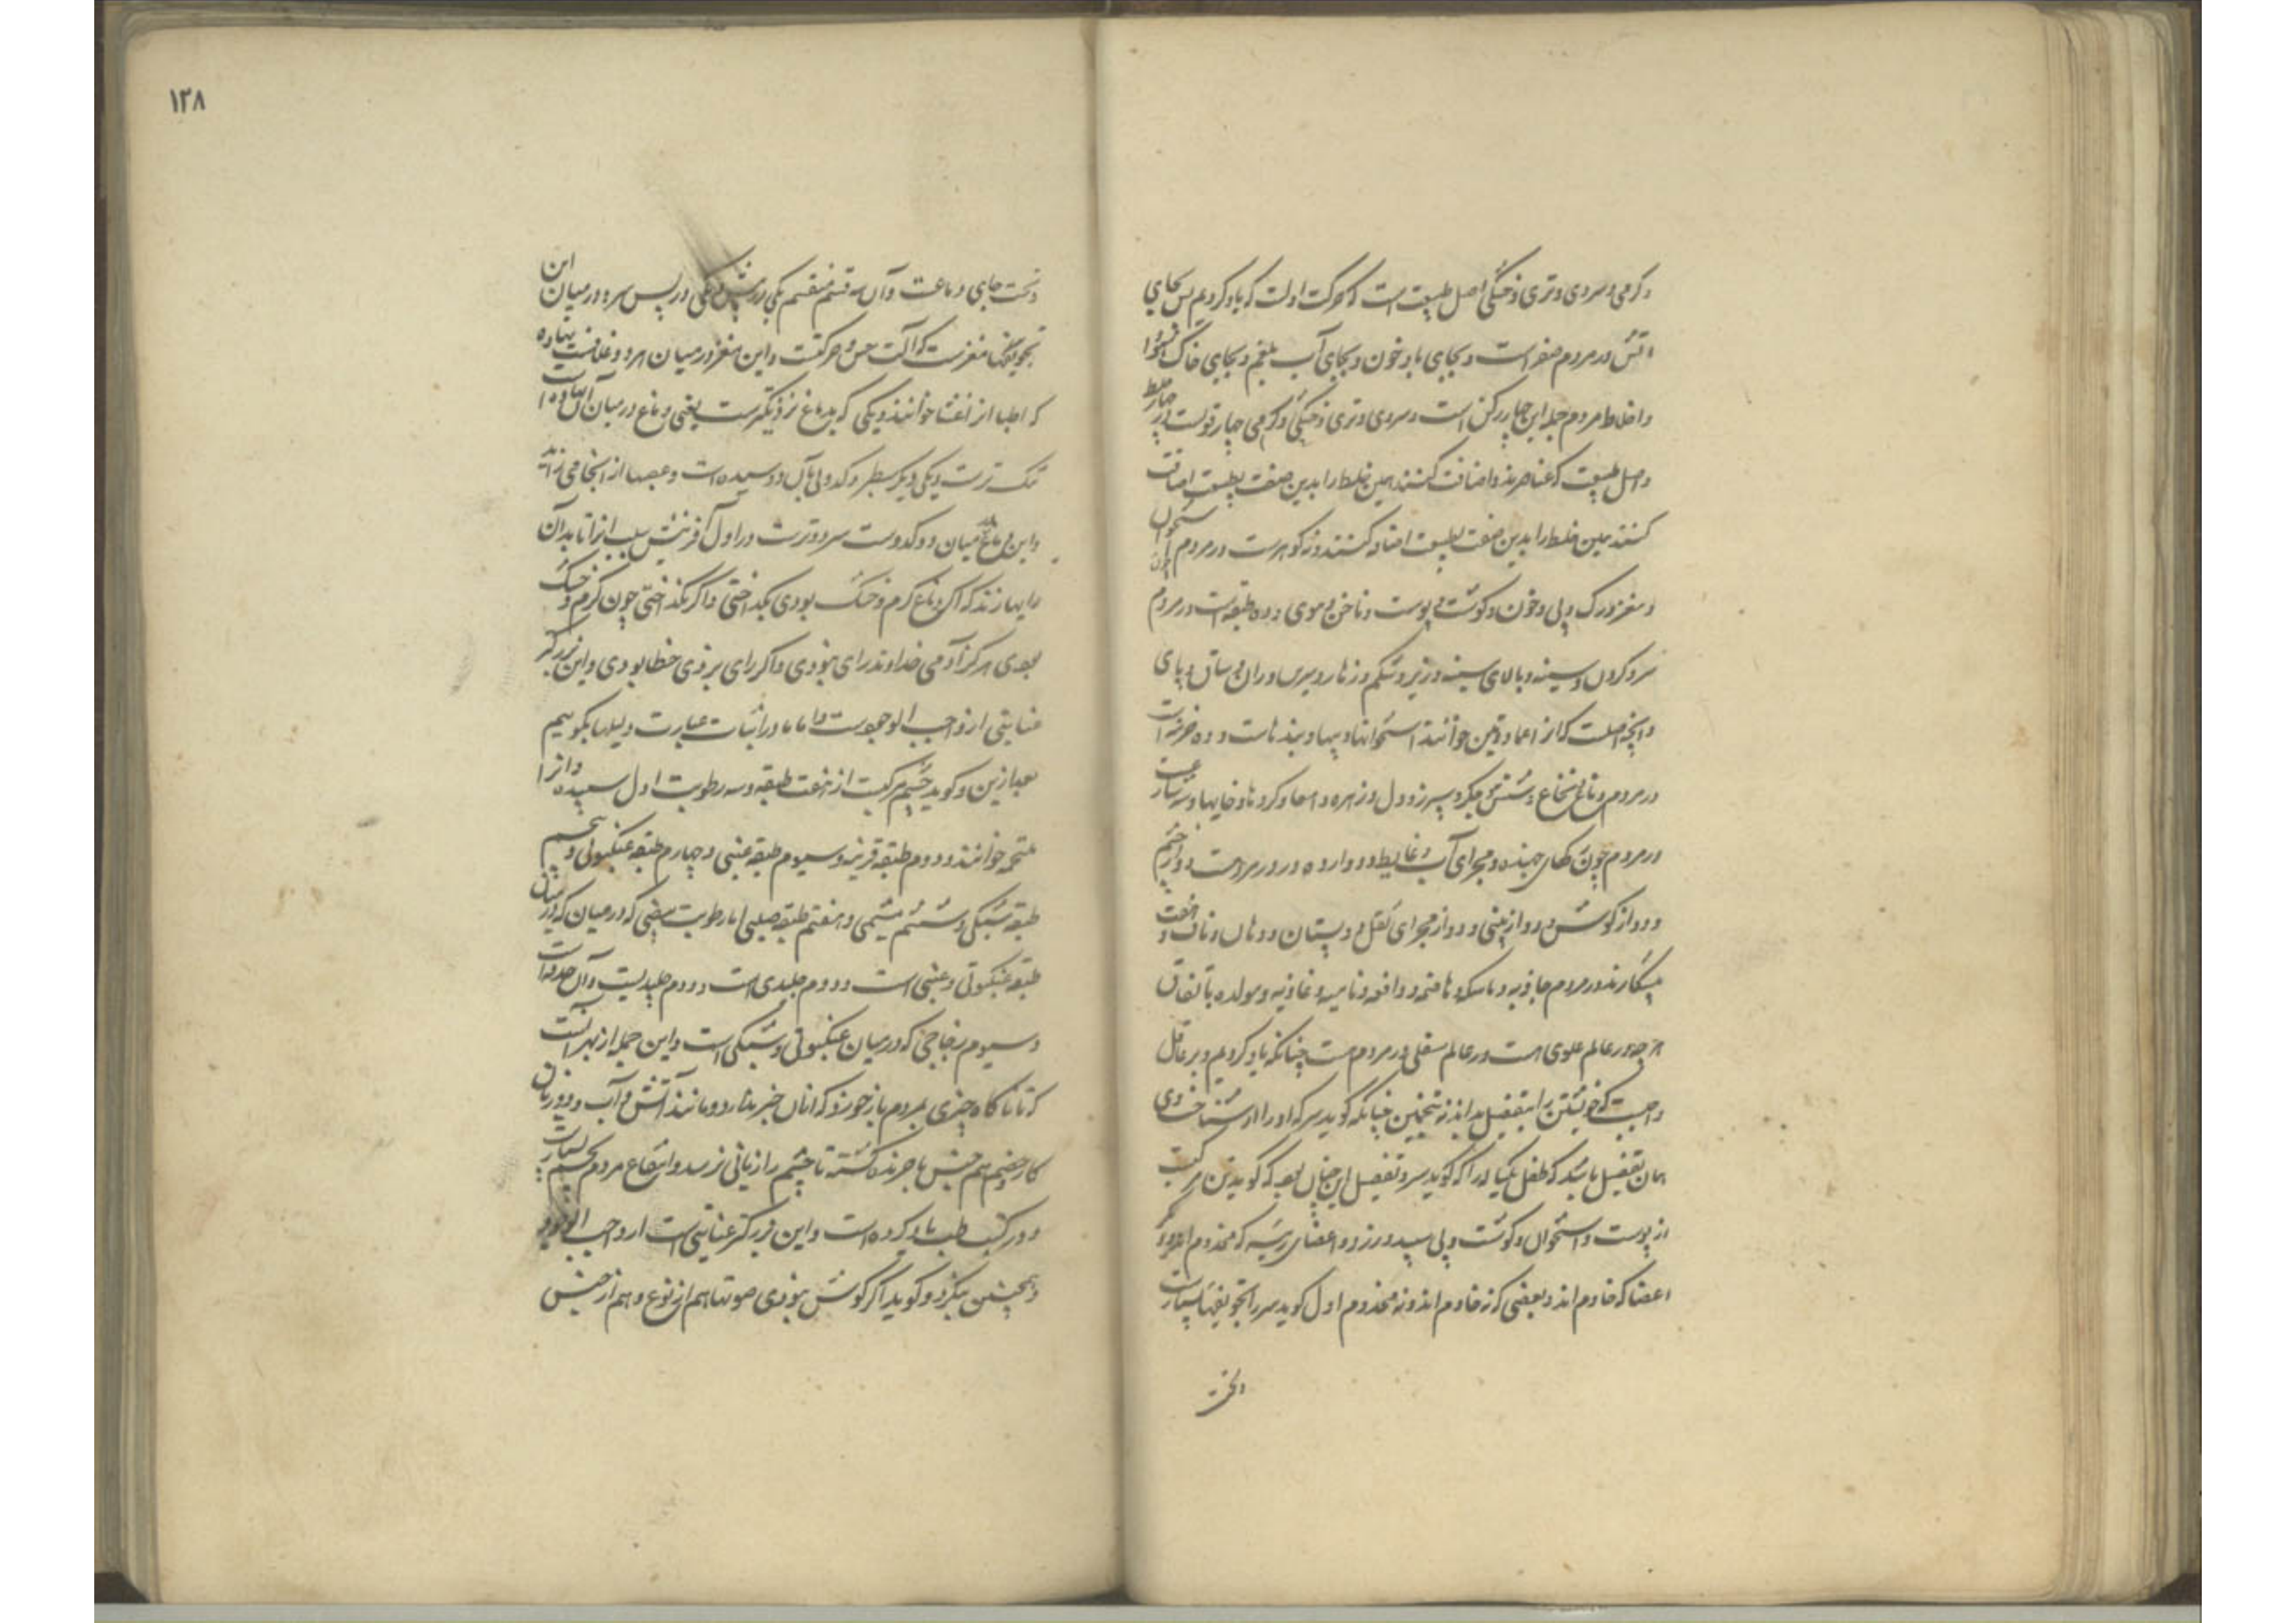 و گرمی و سردی و تری و خشکی اصل طبیعت است که حرکت اولست که یاد کردیم پس بجای
آتش در مردم صفر است و بجای باد خون و بجای آب بلغم و بجای خاک سودا
و اخلاط مردم جمله این چهار رکن است و سردی و تری و خشکی و گرمی چهار قوتست در چهار خلط
و اصل طبیعت که عناصرند و اضافت کنند همین خلط را بدین صفت بطبیعت اضافت
کنند همین خلط را بدین صفت بطبیعت اضافه کنند و ده گوهرست در مردم استخوان
و مغز و رگ و پی و خون و گوشت و پوست و ناخن و موی و ده طبقه است در مردم
سر و گردن و سینه و بالای سینه و زیر و شکم و زهار و سرین و ران و ساق و پای
و پنج اصلست که از اعماد خوانند استخوانها و پیها و بندهاست و ده خزینه است
در مردم دماغ و نخاع و شش و جگر و سپرز و دل و زهره و امعا و گرده و خایها و
در مردم چون رگهای جهنده و مجرای آب و غایط و دوازده در در مردمست دو از چشم
و دو از گوش و دو از بینی و دو از مجرای ثقل و دو پستان و دهان و ناف و هفت
پیشکارند در مردم جاذبه و ماسکه و هاضمه و دافعه و نامیه و غاذیه و مولده باتفاق
هرچه در عالم علوی است و در عالم سفلی در مردم هست چنانکه یاد کردیم و بر عاقل
واجبست که خویشتن را بتفصیل بداند نه بتخمین چنانکه گوید سر که او را شناختی
همان تفصیل باشد که طفل یکساله را که گوید سر و تفصیل این چنان بود که گوید تن مرکب
از پوست و استخوان و گوشت و پی سپید و زرد و اعضای رئیسه که مخدوم اند و
اعضا که خادم اند و بعضی که نه خادم اند و نه مخدوم اول گوید سر را تجویفها بسیارست
نخست جای دماغست و آن سه قسم منقسم یکی در پیش و یکی در پس سر و در میان این
تجویفها مغزست که آلت حس و حرکتست و این مغز در میان هر دو غلافست نهاده
که اطبا آنرا غشا خوانند و یکی که بدماغ نزدیکترست یعنی دماغ در میان آن نهاده است
تنک ترست و یکی دیگر سطبر و کدوی بآن دوسیده است و عصبها از اینجا می زاید
و این دماغ میان دو کدوست سرد و ترست در اول آفرینش سبب آنرا تا بدان
رایها زند که اگر دماغ گرم و خشک بودی بگداختی و اگر نگداختی چون گرم و خشک
بودی هرگز آدمی خداوند رای نبودی و اگر رای بزدی خطا بودی و این بزرگتر
عنایتی از واجب الوجودست و اما ما در اثبات عبارت دلیلها بگوییم
بعد ازین و گوید چشم مرکبست از هفت طبقه و سه رطوبت اول سپیده و آنرا
ملتحمه خوانند و دوم طبقه قرنیه و سیوم طبقه عنبی و چهارم طبقه عنکبوتی و پنجم
طبقه شبکی و ششم مشیمی و هفتم طبقه صلبی اما رطوبت بیضی که در میان
طبقه عنکبوتی و عنبی است و دوم جلیدی است و دوم جلیدیست و آن حدقه است
و سیوم زجاجی که در میان عنکبوتی و شبکی است و این جمله از بهر آنست
که تا ناگاه چیزی بمردم باز خورد که از آن خبر ندارد و مانند آتش و آب و دود
کار چشم هم جنس باصره نگشته تا چشم را زیانی نرسد و انتفاع مردم بچشم بسیارست
و در کتب طب یاد کرده است و این بزرگتر عنایتی است از واجب الوجود
و همچنین بنگرد و گوید اگر گوش نبودی صوتها هم از نوع و هم از جنس
۱۲۸